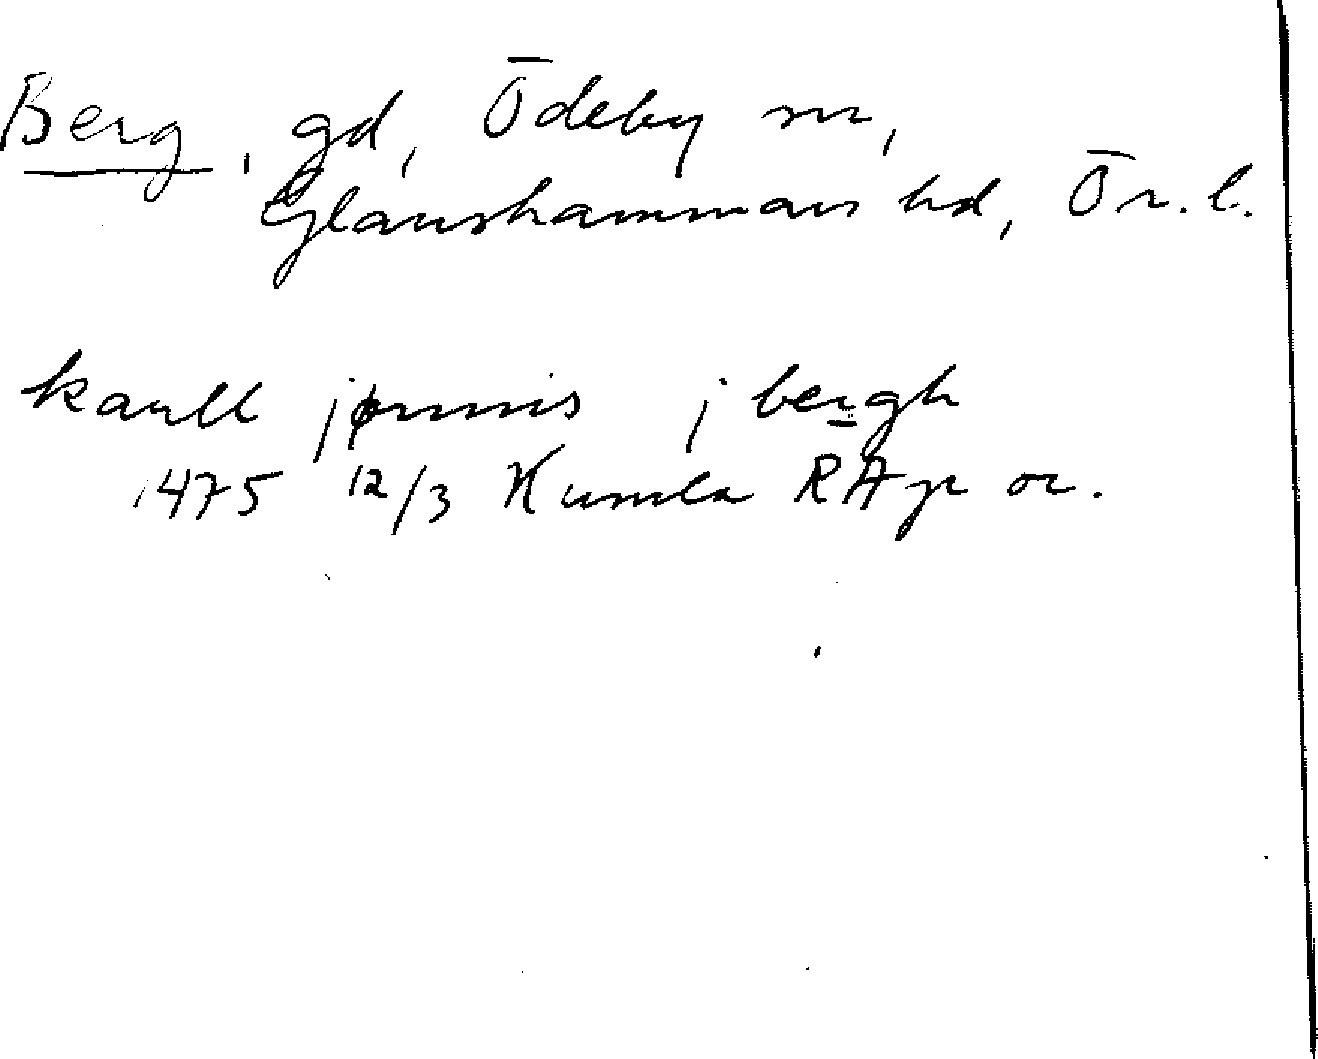 Berg, gd, Ödeby sn,
Glanshammars hd, Ör. l.
karll jønnis j bergh
1475 12/3 Kumla RAp or.